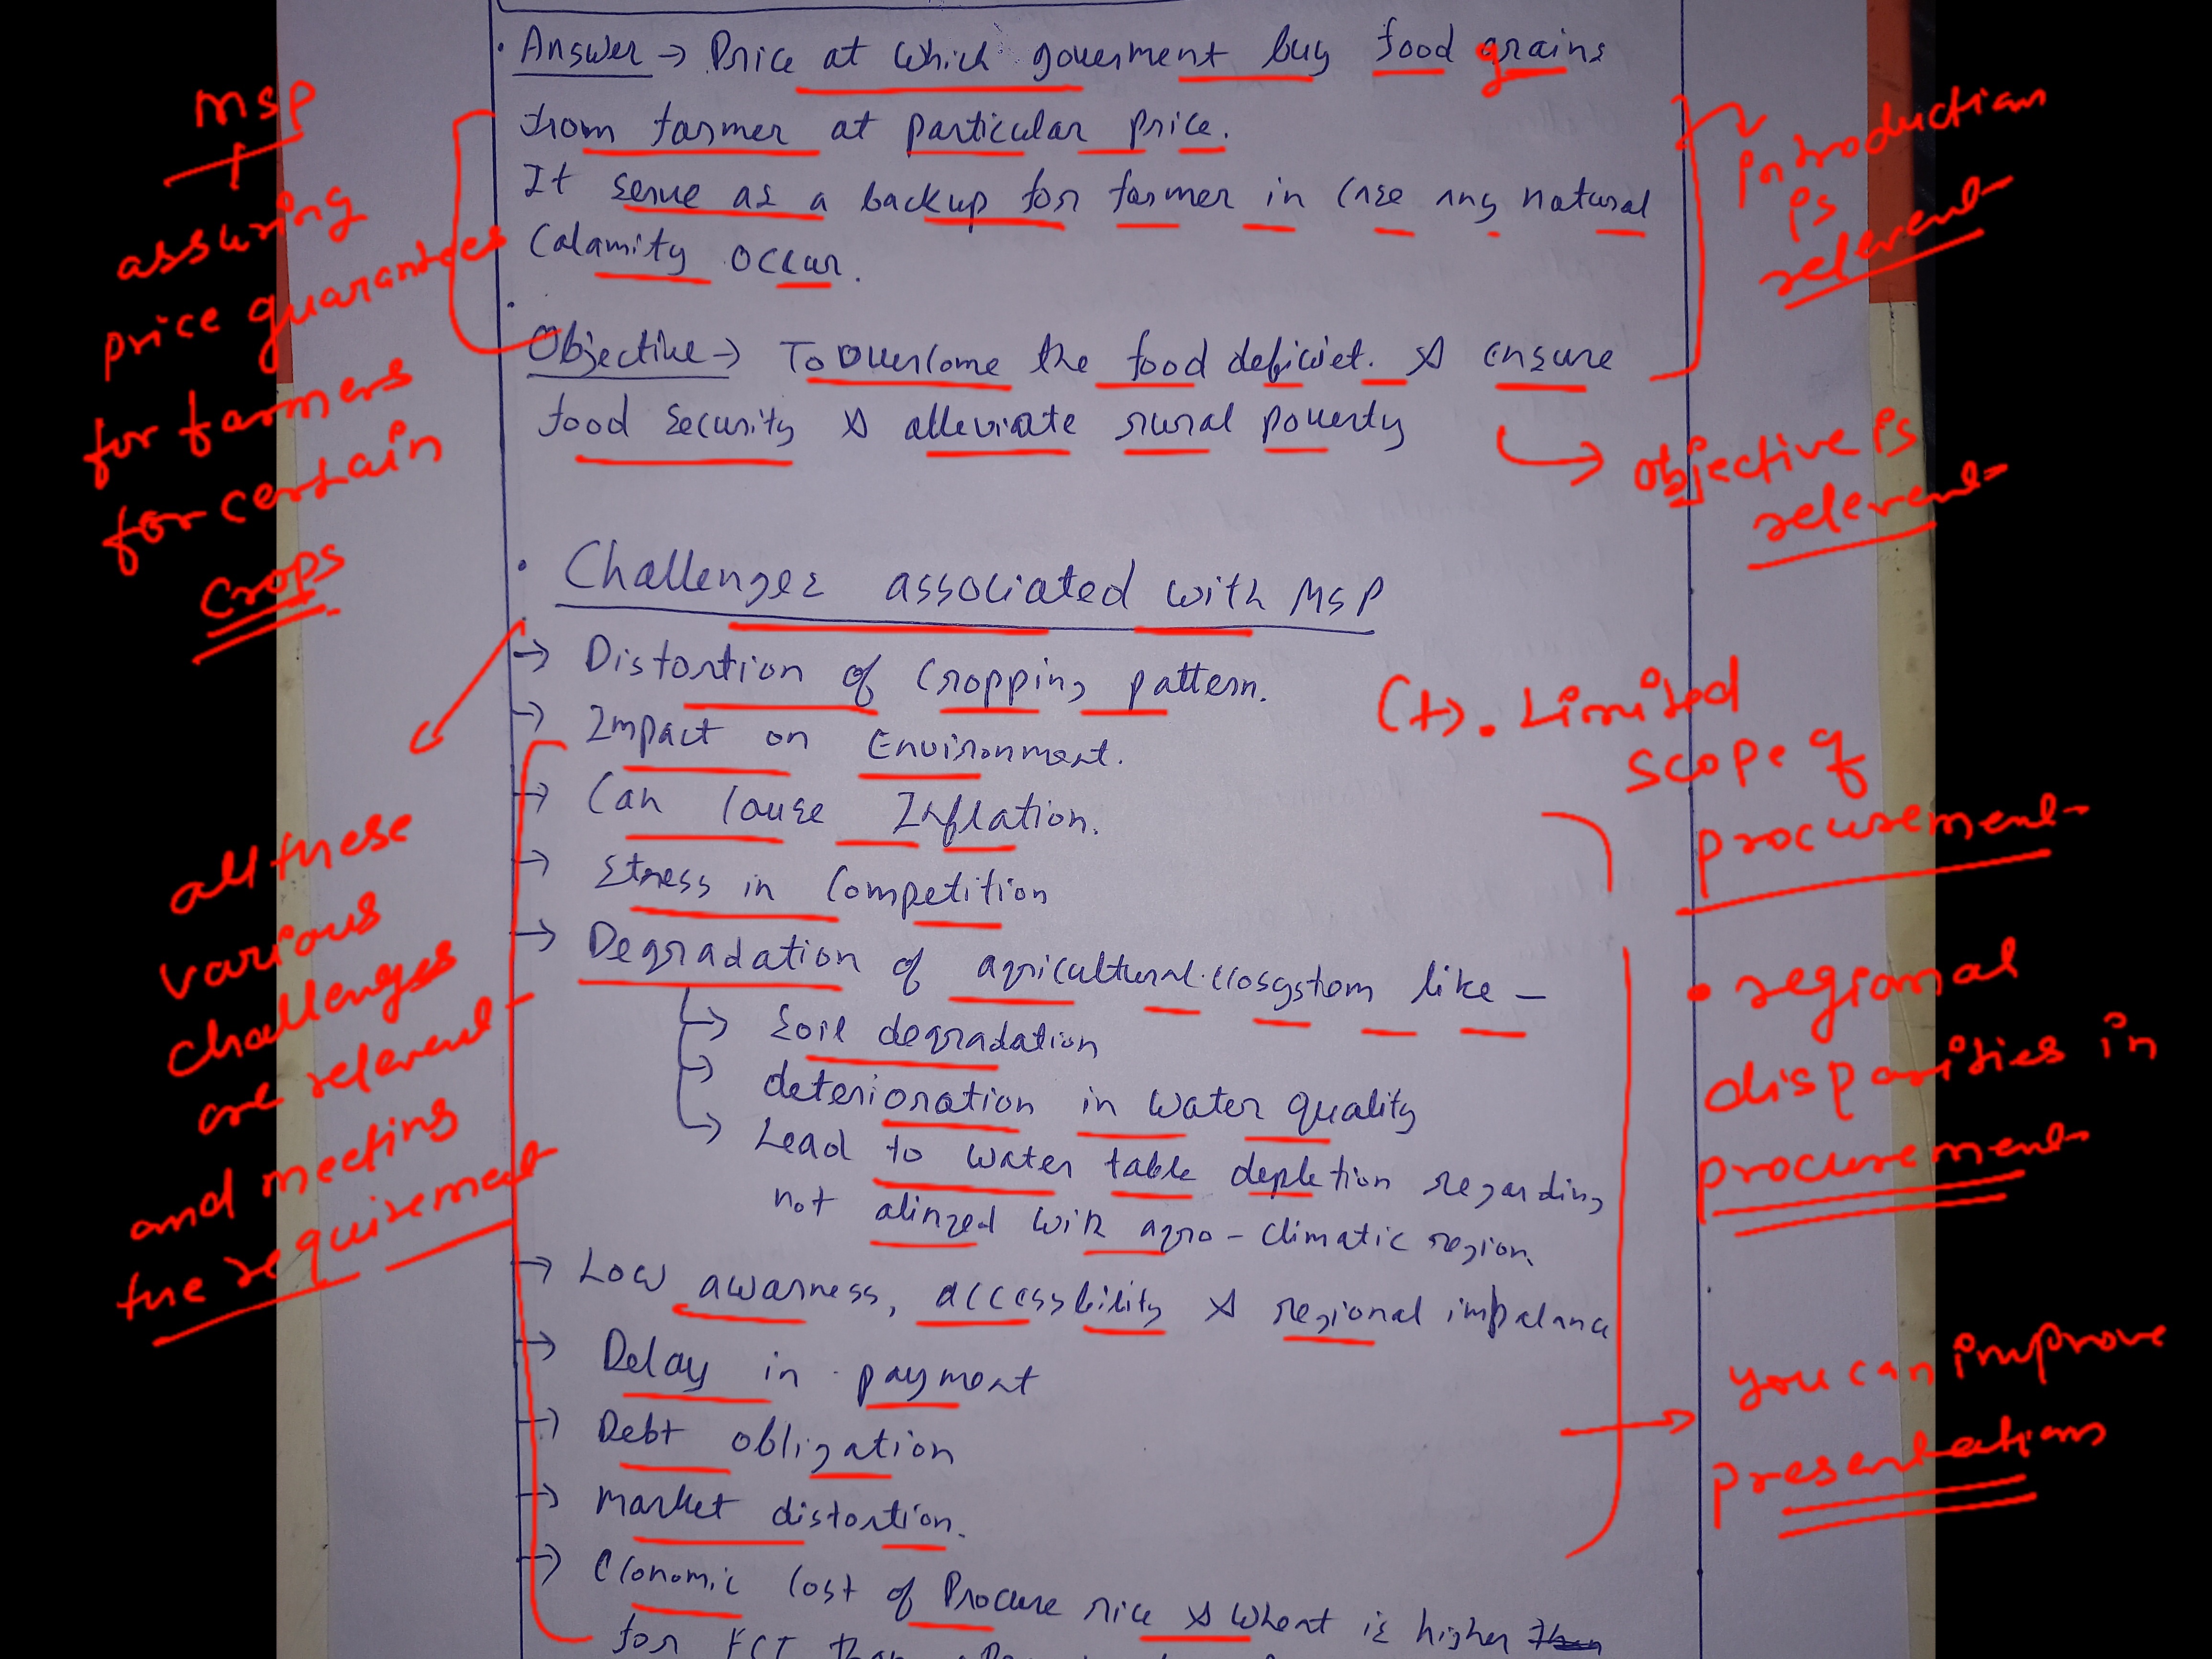 • Answer → Price at which government buy food grains
from farmer at particular price.
It serve as a backup for farmer in case any natural
Calamity occur.
Objective → To overcome the food deficiet. & ensure
food security & alleviate rural poverty
• Challenges associated with MSP
→ Distortion of Cropping pattern.
→ Impact on Environment.
→ Can cause Inflation.
→ Stress in Competition
→ Degradation of agricultural ecosystem like —
→ Soil degradation
→ deterioration in water quality
→ Lead to water table depletion regarding
not alinged with agro - climatic region.
→ Low awarness, accessbility & regional imbalance
→ Delay in payment
→ Debt obligation
→ Market distortion.
→ Economic cost of Procure rice & wheat is higher
for FCI than
MSP
assuring
price guarantees
for farmers
for certain
crops
all these
various
challenges
are relevent
and meeting
the requirement
Introduction
is
relevent
Objective is
relevent
(+). Limited
scope of
procurement
• regional
disparities in
procurement
you can improve
presentations